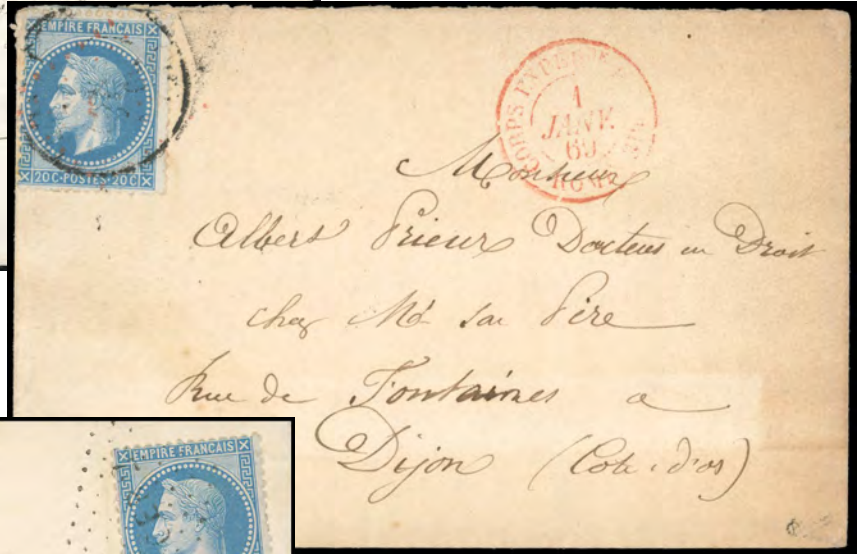 EMPIRE FRANCAIS
20C·POSTES·20C
CORPS EXP
1
JANV.
69
ROM
Monsieur
Albert Prieur Docteur en Droit
chez Mr son Père
Rue de Fontaines a
Dijon (Cote-d'or)
EMPIRE FRANCAIS